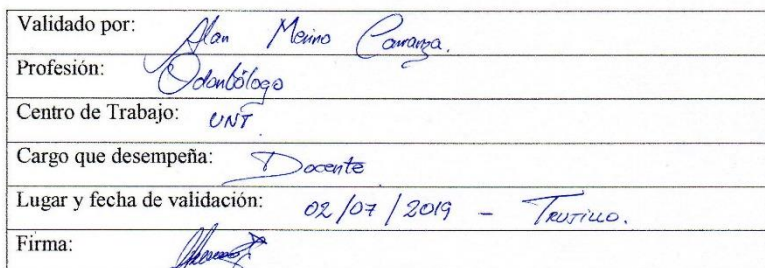 Validado por: Alan Merino Carranza.
Profesión: Odontólogo
Centro de Trabajo: UNT
Cargo que desempeña: Docente
Lugar y fecha de validación: 02/07/2019 - TRUJILLO.
Firma: